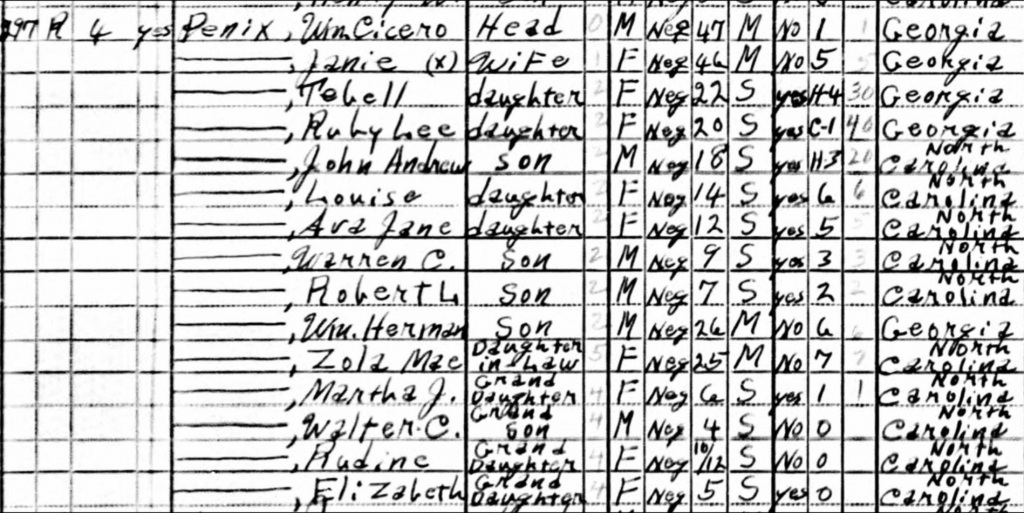 297 R 4 yes Penix, Wm Cicero Head 0 M Neg 47 M No 1 1 Georgia
——, Janie (x) Wife 1 F Neg 46 M No 5 Georgia
——, Tobell daughter 2 F Neg 22 S yes H-4 30 Georgia
——, Ruby Lee daughter 2 F Neg 20 S yes C-1 40 Georgia
——, John Andrew son 2 M Neg 18 S yes H-3 20 North Carolina
——, Louise daughter 2 F Neg 14 S yes 6 6 North Carolina
——, Ava Jane daughter 2 F Neg 12 S yes 5 5 North Carolina
——, Warren C. Son 2 M Neg 9 S yes 3 3 North Carolina
——, Robert L Son 2 M Neg 7 S yes 2 2 North Carolina
——, Wm. Herman Son 2 M Neg 26 M No 6 6 Georgia
——, Zola Mae Daughter in Law 5 F Neg 25 M No 7 7 North Carolina
——, Martha J. Grand Daughter 4 F Neg 6 S yes 1 1 North Carolina
——, Walter C. Grand Son 4 M Neg 4 S No 0 North Carolina
——, Rudine Grand Daughter 4 F Neg 10/12 S No 0 North Carolina
——, Elizabeth Grand Daughter 4 F Neg 5 S yes 0 North Carolina